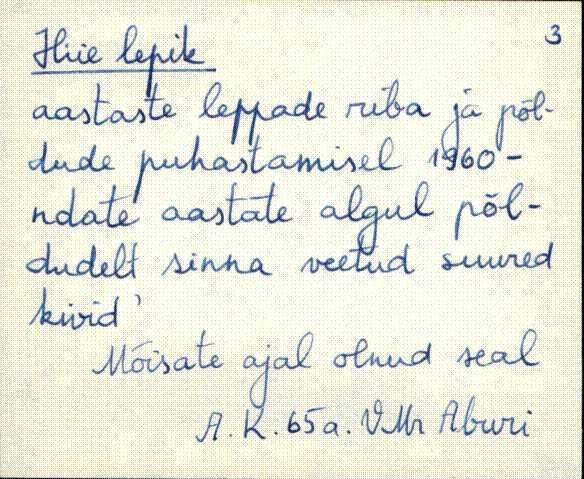 3
Hiie lepik
aastaste leppade riba ja põl-
dude puhastamisel 1960-
ndate aastate algul põl-
dudelt sinna veetud suured
kivid'
Mõisate ajal olnud seal
A. K. 65 a. VMr Aburi